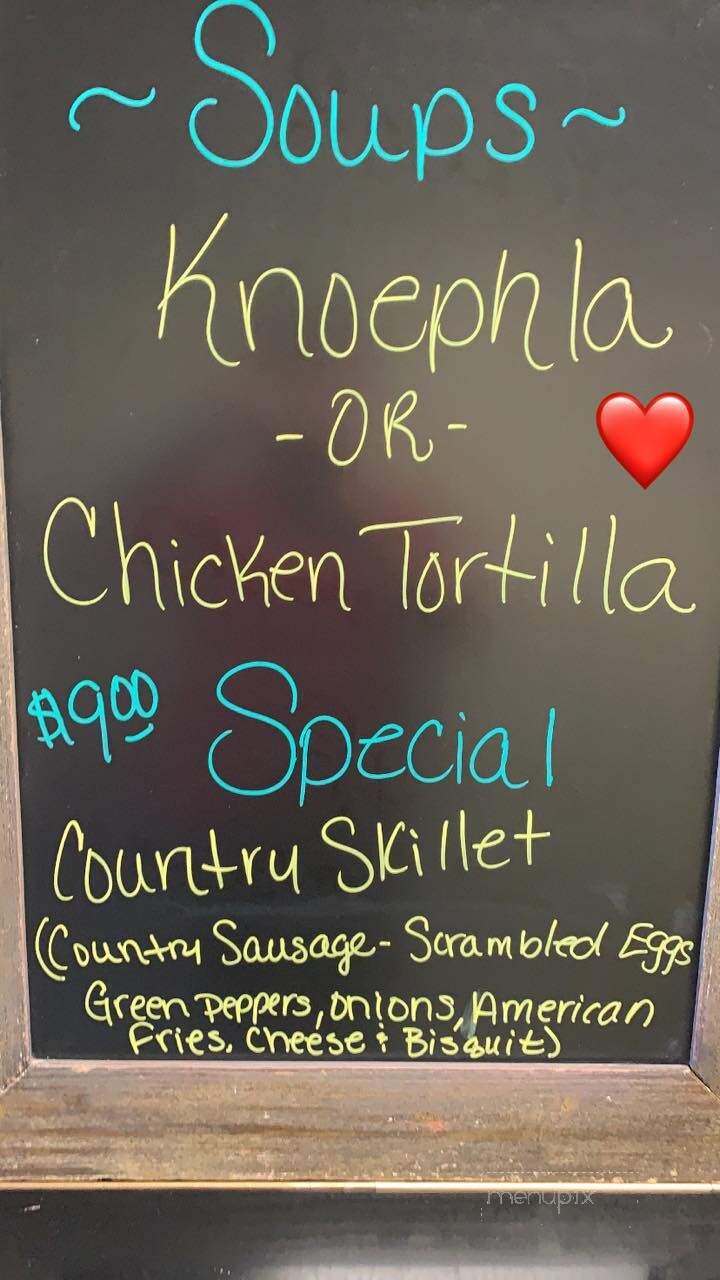 ~ Soups ~
Knoephla
- OR -
Chicken Tortilla
$9.00 Special
Country Skillet
(Country Sausage - Scrambled Eggs
Green Peppers, Onions, American
Fries, Cheese & Bisquit)
menupix